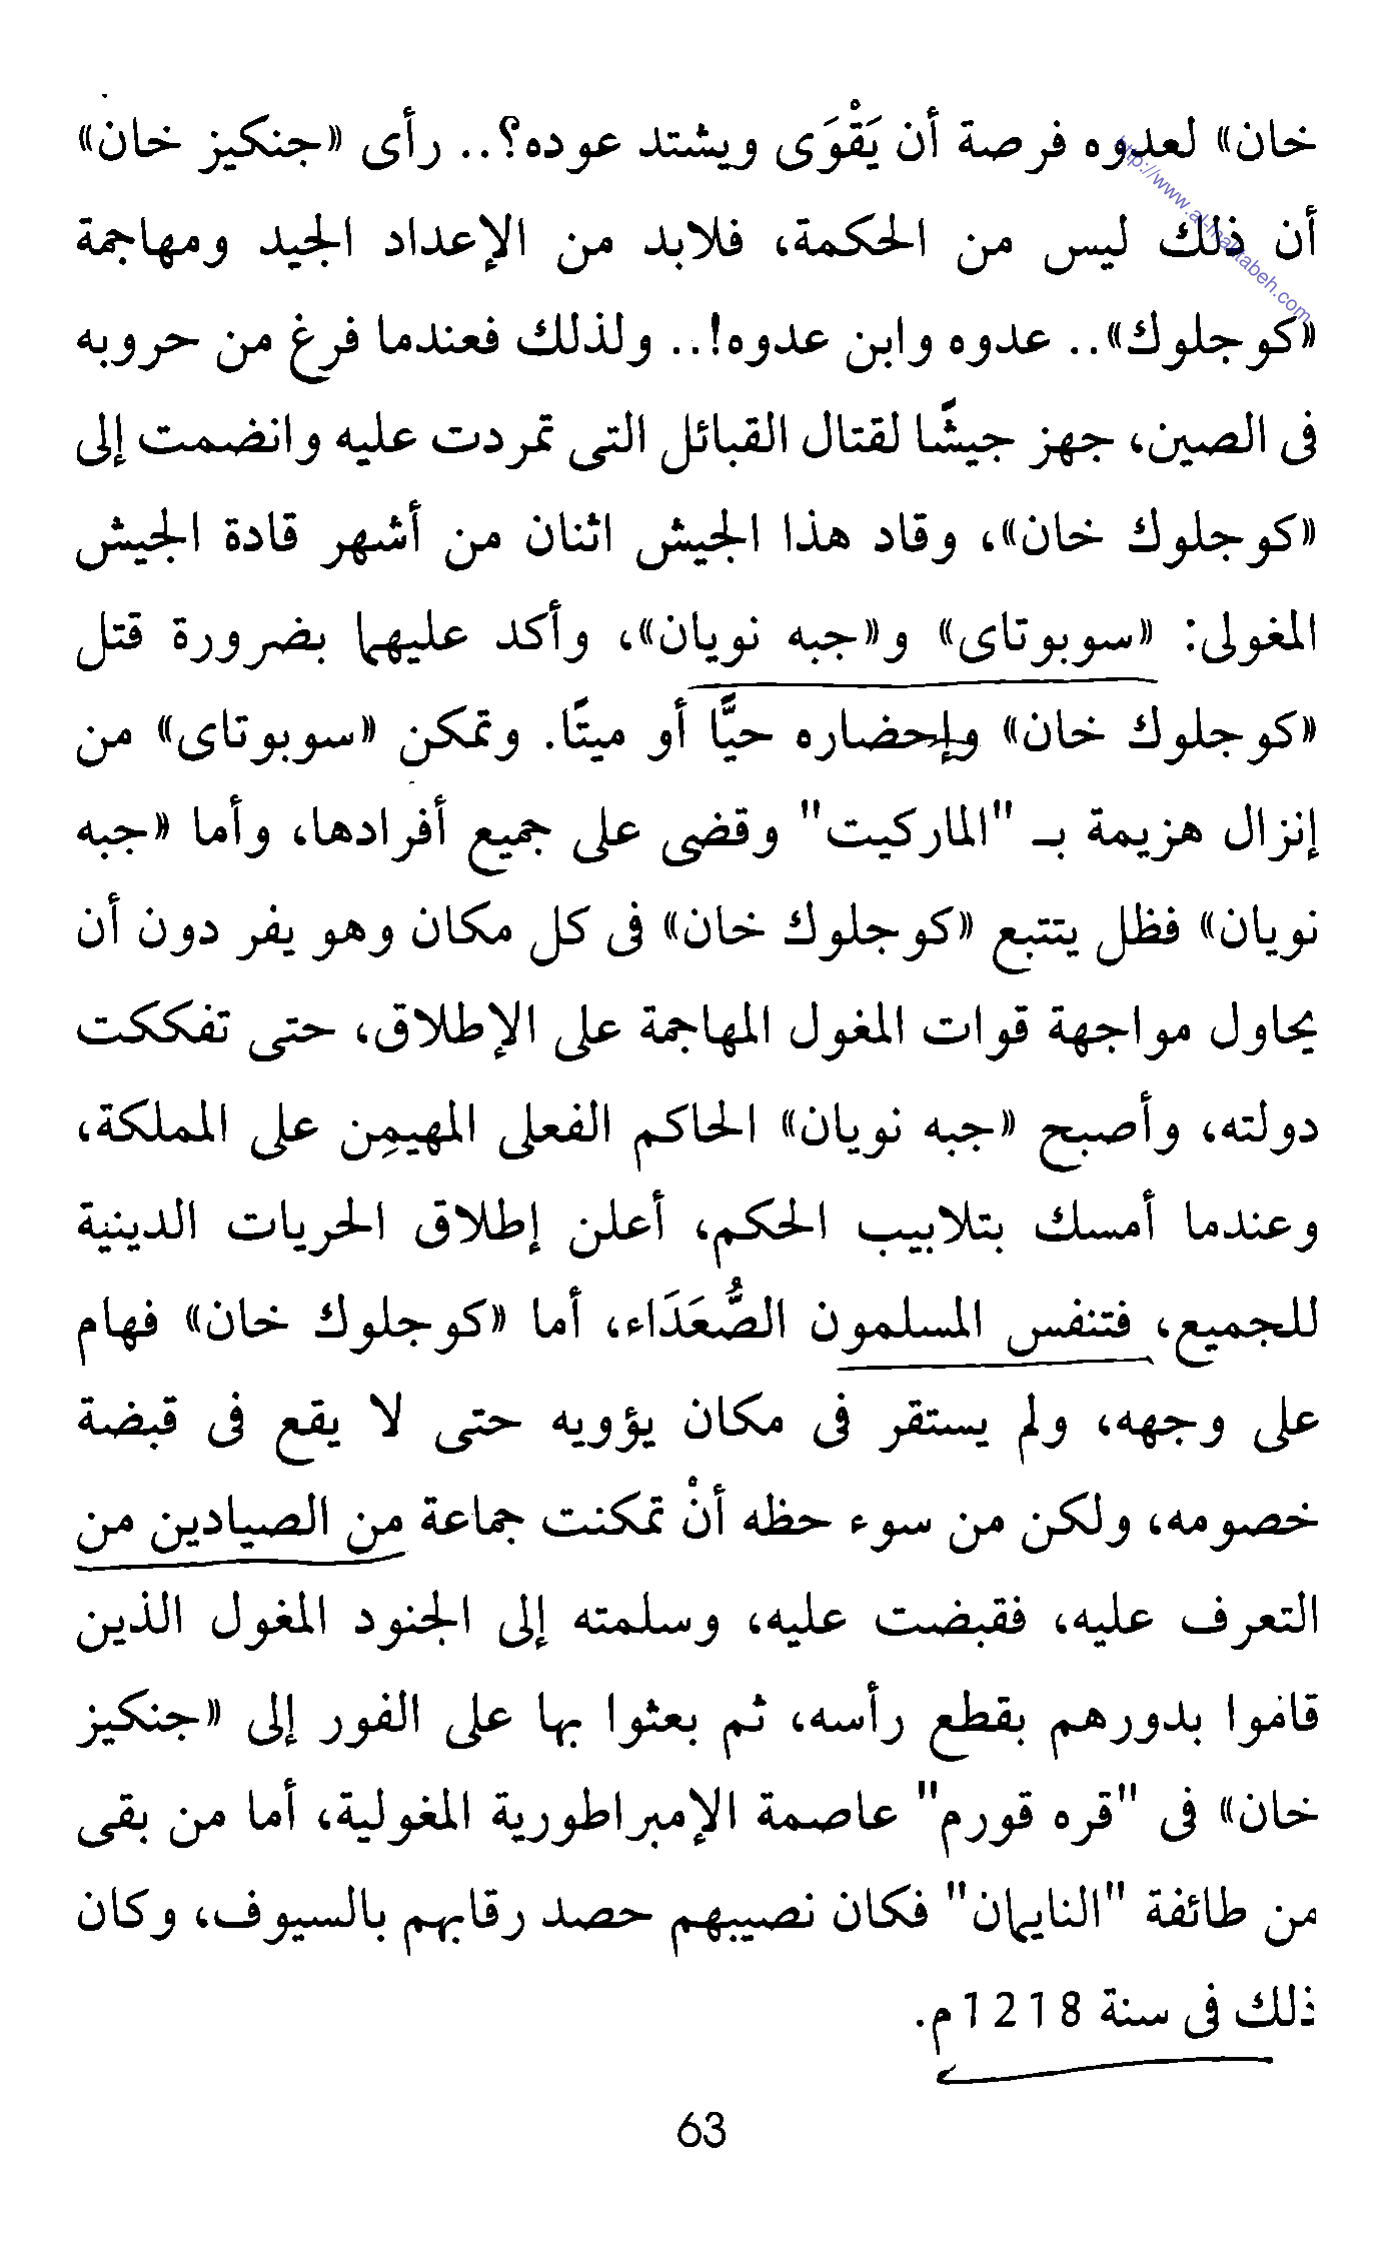 خان» لعدوه فرصة أن يَقْوَى ويشتد عوده؟.. رأى «جنكيز خان»
أن ذلك ليس من الحكمة، فلابد من الإعداد الجيد ومهاجمة
«كوجلوك».. عدوه وابن عدوه!.. ولذلك فعندما فرغ من حروبه
فى الصين، جهز جيشًا لقتال القبائل التى تمردت عليه وانضمت إلى
«كوجلوك خان»، وقاد هذا الجيش اثنان من أشهر قادة الجيش
المغولى: «سوبوتاى» و«جبه نويان»، وأكد عليهما بضرورة قتل
«كوجلوك خان» وإحضاره حيًّا أو ميتًا. وتمكن «سوبوتاى» من
إنزال هزيمة بـ "الماركيت" وقضى على جميع أفرادها، وأما «جبه
نويان» فظل يتتبع «كوجلوك خان» فى كل مكان وهو يفر دون أن
يحاول مواجهة قوات المغول المهاجمة على الإطلاق، حتى تفككت
دولته، وأصبح «جبه نويان» الحاكم الفعلى المهيمِن على المملكة،
وعندما أمسك بتلابيب الحكم، أعلن إطلاق الحريات الدينية
للجميع، فتنفس المسلمون الصُّعَدَاء، أما «كوجلوك خان» فهام
على وجهه، ولم يستقر فى مكان يؤويه حتى لا يقع فى قبضة
خصومه، ولكن من سوء حظه أنْ تمكنت جماعة من الصيادين من
التعرف عليه، فقبضت عليه، وسلمته إلى الجنود المغول الذين
قاموا بدورهم بقطع رأسه، ثم بعثوا بها على الفور إلى «جنكيز
خان» فى "قره قورم" عاصمة الإمبراطورية المغولية، أما من بقى
من طائفة "النايمان" فكان نصيبهم حصد رقابهم بالسيوف، وكان
ذلك فى سنة 1218م.
63
http://www.al-maktabeh.com